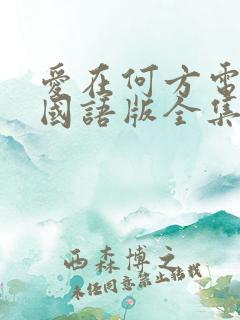 愛在何方電
國語版全集
西森博之
未任同意禁止轉載